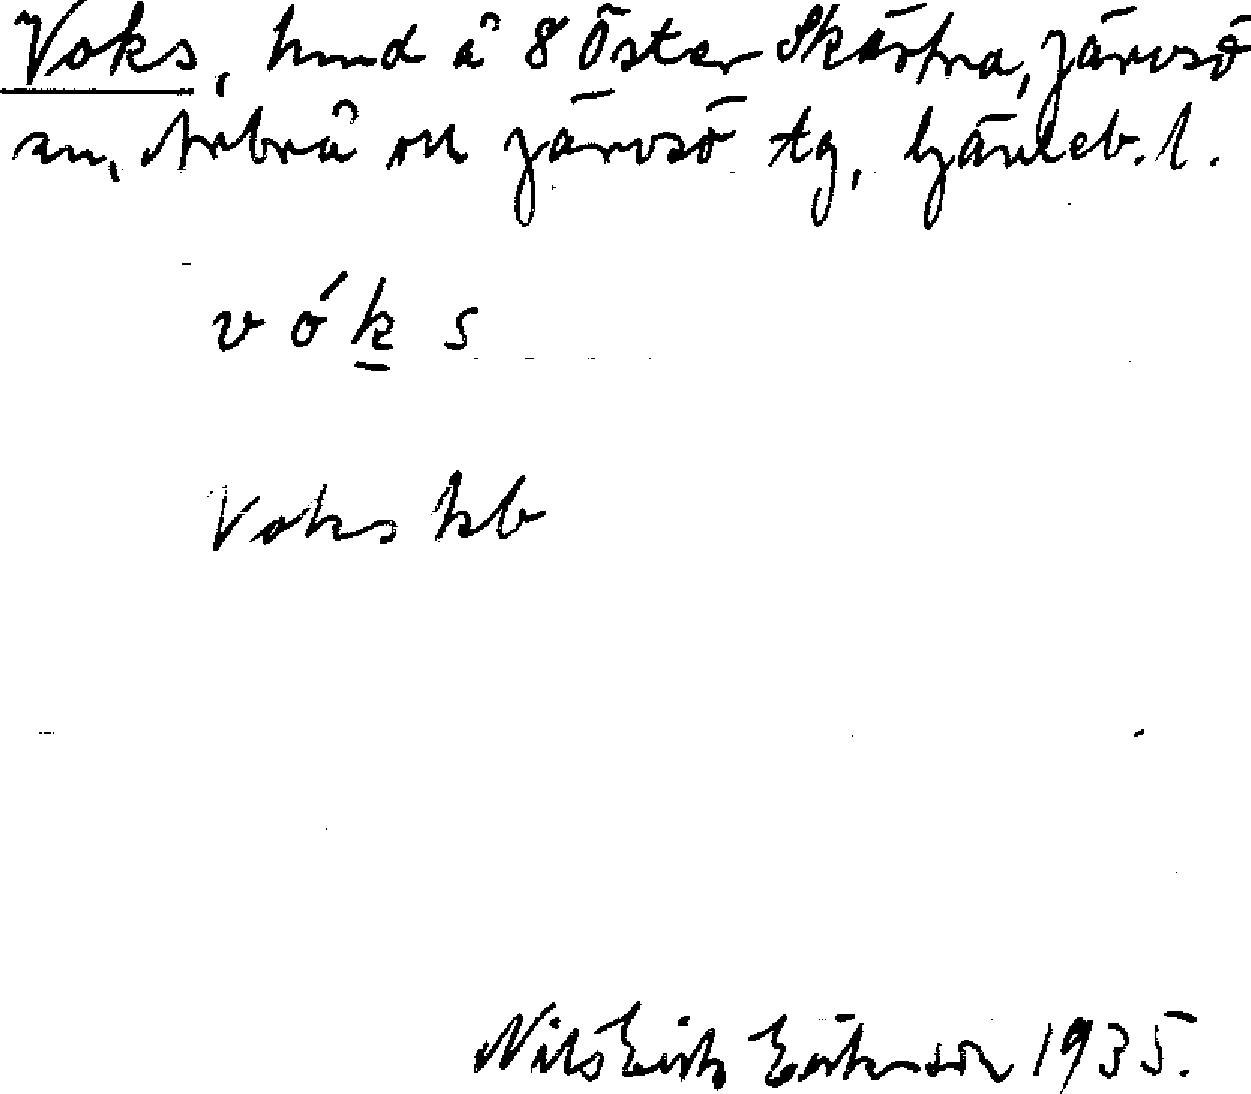 Voks, hmd å 8 Öster Skästra, Järvsö
sn, Arbrå och Järvsö tg, Gävleb. l.
v ó k s
Voks kb
Nils Eric 1935.